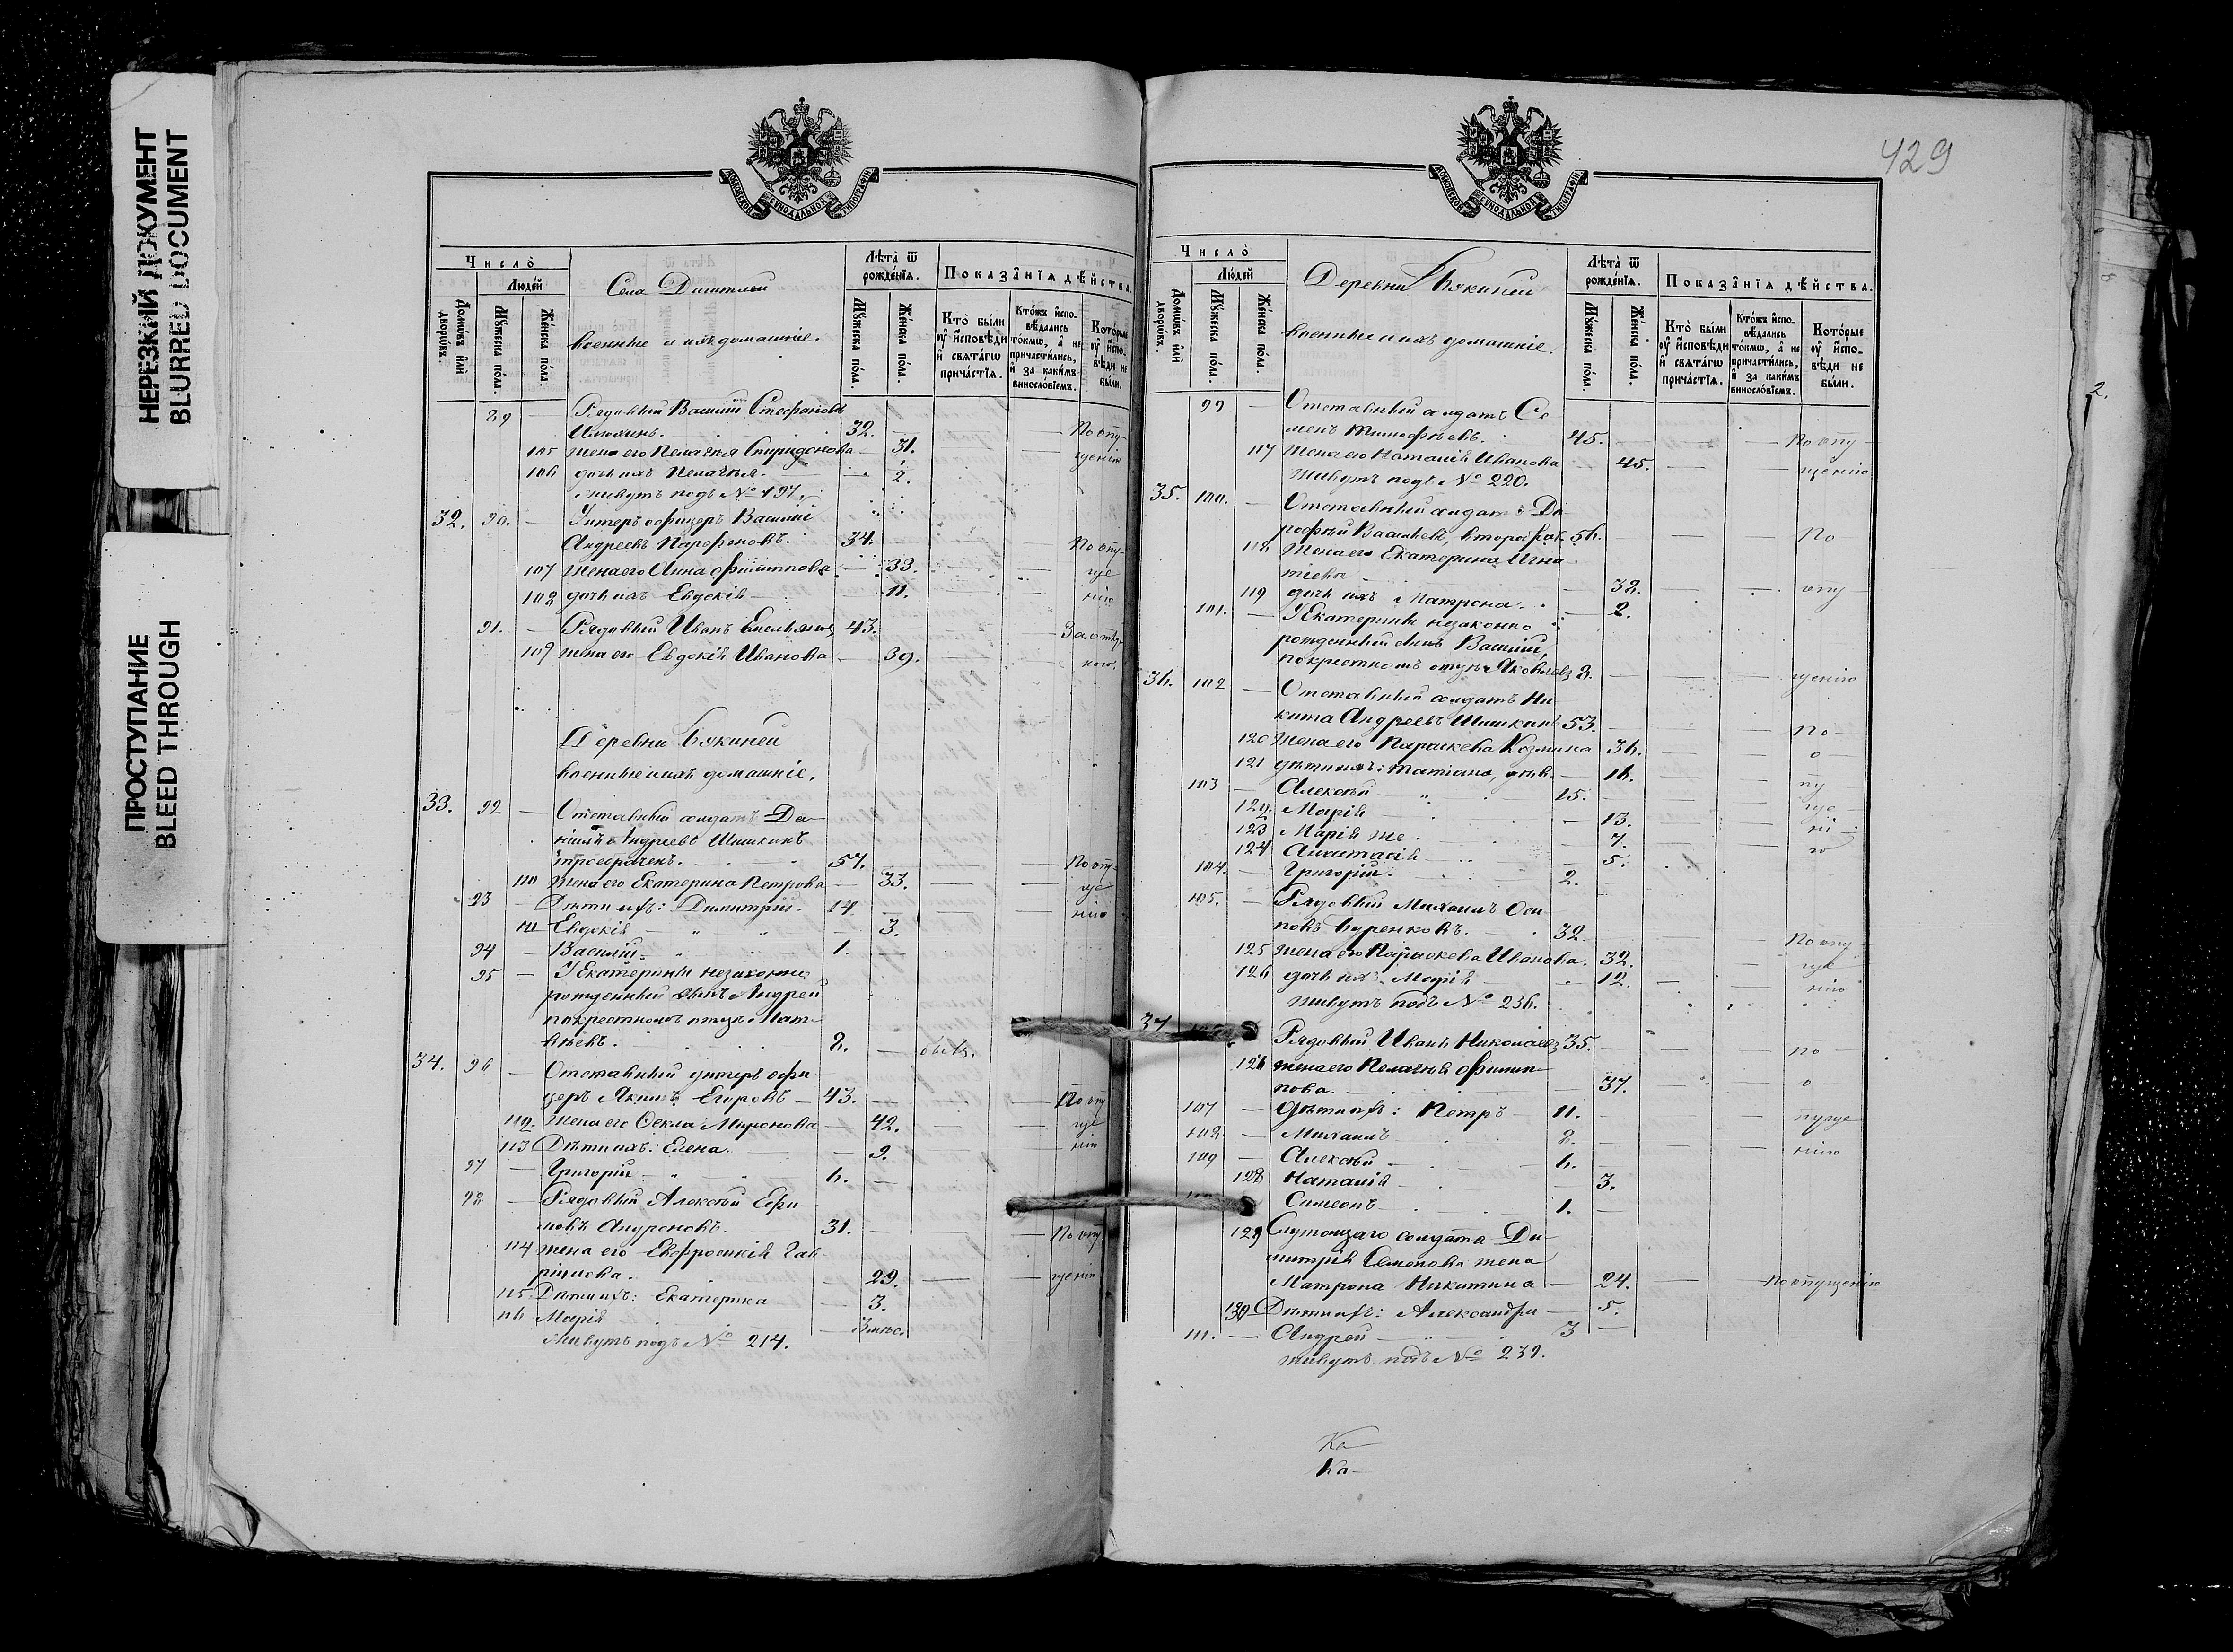 НЕРЕЗКИЙ ДОКУМЕНТ
BLURRED DOCUMENT
ПРОСТУПАНИЕ
BLEED THROUGH
МОСКОВСКОЙ СѴНОДАЛЬНОЙ ТИПОГРАФІИ
Число̀
Люде́й
Домѡ́въ и҆лѝ дворѡ́въ.
Мꙋ́жеска по́ла.
Же́нска по́ла.
Села
военные и ихъ домашніе.
Лѣ́та ѿ рожде́нїѧ.
Мꙋ́жеска по́ла.
Же́нска по́ла.
Показа̑нїѧ дѣ́йства.
Кто̀ бы́ли ᲂу҆ и҆сповѣ́ди и҆ свѧта́гѡ прича́стїѧ.
Кто́жъ и҆спо-вѣ́дались то́кмѡ, а҆ не причасти́лись, и҆ за каки́мъ виносло́вїемъ.
Кото́рые ᲂу҆ и҆спо-вѣ́ди не бы́ли.
89 — Рядовый Василій Стефановъ
Илюхинъ. 32. — По опу-
105 жена его Пелагія Спиридонова — 31. щенію
106 дочь ихъ Пелагія — 2.
живутъ подъ № 197.
32. 90. — Унтеръ офицеръ Василій
Андреевъ Парфеновъ. 34. По опу-
107 жена его Анна Филиппова — 33. ще
108 дочь ихъ Евдокія — 11. нію
91. — Рядовый Иванъ Емельяновъ 43. За отлу-
109 жена его Евдокія Иванова — 39. кою.
Деревни
военные и ихъ домашніе.
33. 92 — Отставный солдатъ Да-
ніилъ Андреевъ Шишкинъ
троебраченъ. 57. По опу-
110 жена его Екатерина Петрова — 33. ще
93 — Дѣти ихъ: Димитрій 14 нію
111 Евдокія — 3.
94 — Василій 1. —
95 — У Екатерины незаконно
рожденный сынъ Андрей
по крестномъ отцѣ Мат-
вѣевъ. 8. —
34. 96 — Отставный унтеръ офи-
церъ Якимъ Егоровъ — 43. По опу
112. жена его Ѳекла Миронова — 42. ще
113 Дѣти ихъ: Елена. — 9. нію
97 — Григорій 6. —
98 — Рядовый Алексѣй Ефи-
мовъ 31. — По опу
114 жена его Евфросинія Гав-
ріилова. 29. щенію
115. Дѣти ихъ: Екатерина — 3.
116 Марія — 3 мѣс.
Живутъ подъ № 214.
429
Число̀
Люде́й
Домѡ́въ и҆лѝ дворѡ́въ.
Мꙋ́жеска по́ла.
Же́нска по́ла.
Деревни
военные и ихъ домашніе.
Лѣ́та ѿ рожде́нїѧ.
Мꙋ́жеска по́ла.
Же́нска по́ла.
Показа̑нїѧ дѣ́йства.
Кто̀ бы́ли ᲂу҆ и҆сповѣ́ди и҆ свѧта́гѡ прича́стїѧ.
Кто́жъ и҆спо-вѣ́дались то́кмѡ, а҆ не причасти́лись, и҆ за каки́мъ виносло́вїемъ.
Кото́рые ᲂу҆ и҆спо-вѣ́ди не бы́ли.
99 — Отставный солдатъ Се-
менъ Тимофѣевъ. 45. — По опу-
117 жена его Наталія Иванова 45. щенію
живутъ подъ № 220.
35. 100. — Отставный солдатъ До-
рофѣй Васильевъ, второбрач. 56. — По
118 жена его Екатерина Игна-
тіева — 38. опу
119 дочь ихъ Матрона. — 2.
101. — У Екатерины незаконно
рожденный сынъ Василій,
по крестномъ отцѣ Яковлевъ 8. — щенію
36. 102 — Отставный солдатъ Ни-
кита Андреевъ Шишкинъ 53. — По-
120 жена его Параскева Козмина 36. о
121 дѣти ихъ: Татіана, дѣв. — 16. пу
103 — Алексѣй 15. ще
122. Марія — 13. ні
123 Марія же — 7. ю
124 Анастасія — 5.
104. — Григорій. 2.
105. — Рядовый Михаилъ Оси-
повъ Буренковъ. 32. По опу
125 жена его Параскева Иванова. 32. ще
126 дочь ихъ Марія 12. нію
живутъ подъ № 236.
37 Рядовый Иванъ Николаевъ 35. — по
126 жена его Пелагія Филип-
пова. — 37. о
107 — Дѣти ихъ: Петръ — 11. пуще
108 — Михаилъ 8. — нію
109 — Алексѣй — 6.
128 Наталія — 3.
Симеонъ 1. —
129 Служащаго солдата Ди-
митрія Семенова жена
Матрона Никитина — 24. — по опущенію
130 Дѣти ихъ: Александра — 5.
111. — Андрей 3 —
живутъ подъ № 239.
Ка
Ка-
2.